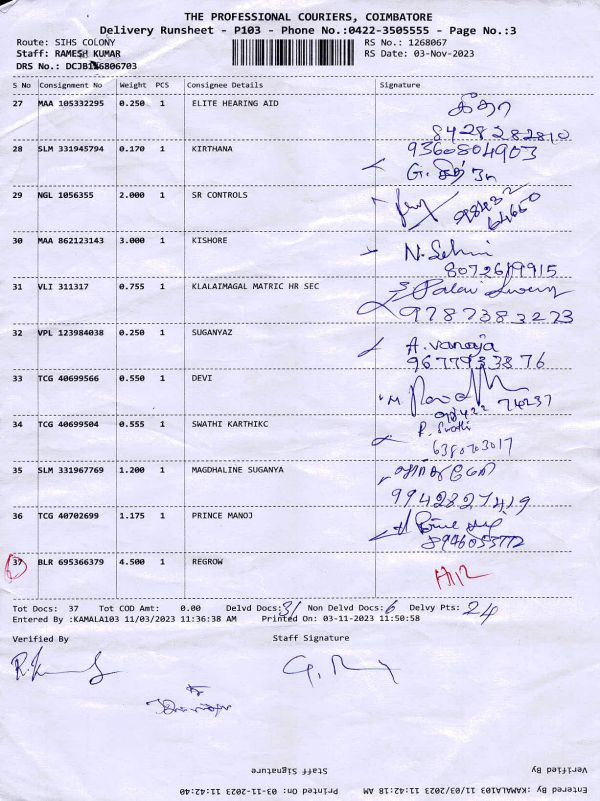 THE PROFESSIONAL COURIERS, COIMBATORE
Delivery Runsheet - P103 - Phone No.:0422-3505555 - Page No.:3
Route: SIHS COLONY RS No.: 1268067
Staff: RAMESH KUMAR RS Date: 03-Nov-2023
DRS No.: DCJB126806703
S No Consignment No Weight PCS Consignee Details Signature
27 MAA 105332295 0.250 1 ELITE HEARING AID கீதா
8428282810
28 SLM 331945794 0.170 1 KIRTHANA 9360804903
29 NGL 1056355 2.000 1 SR CONTROLS
30 MAA 862123143 3.000 1 KISHORE
8072619915
31 VLI 311317 0.755 1 KLALAIMAGAL MATRIC HR SEC
9787383273
32 VPL 123984038 0.250 1 SUGANYAZ A. Vanaja
9677933876
33 TCG 40699566 0.550 1 DEVI
34 TCG 40699504 0.555 1 SWATHI KARTHIKC P. Swathi
6380703017
35 SLM 331967769 1.200 1 MAGDHALINE SUGANYA
9942827419
36 TCG 40702699 1.175 1 PRINCE MANOJ
8946053772
37 BLR 695366379 4.500 1 REGROW
Tot Docs: 37 Tot COD Amt: 0.00 Delvd Docs: 31 Non Delvd Docs: 6 Delvy Pts: 24
Entered By :KAMALA103 11/03/2023 11:36:38 AM Printed On: 03-11-2023 11:50:58
Verified By Staff Signature
Verified By Staff Signature
Entered By :KAMALA103 11/03/2023 11:42:18 AM Printed On: 03-11-2023 11:42:40